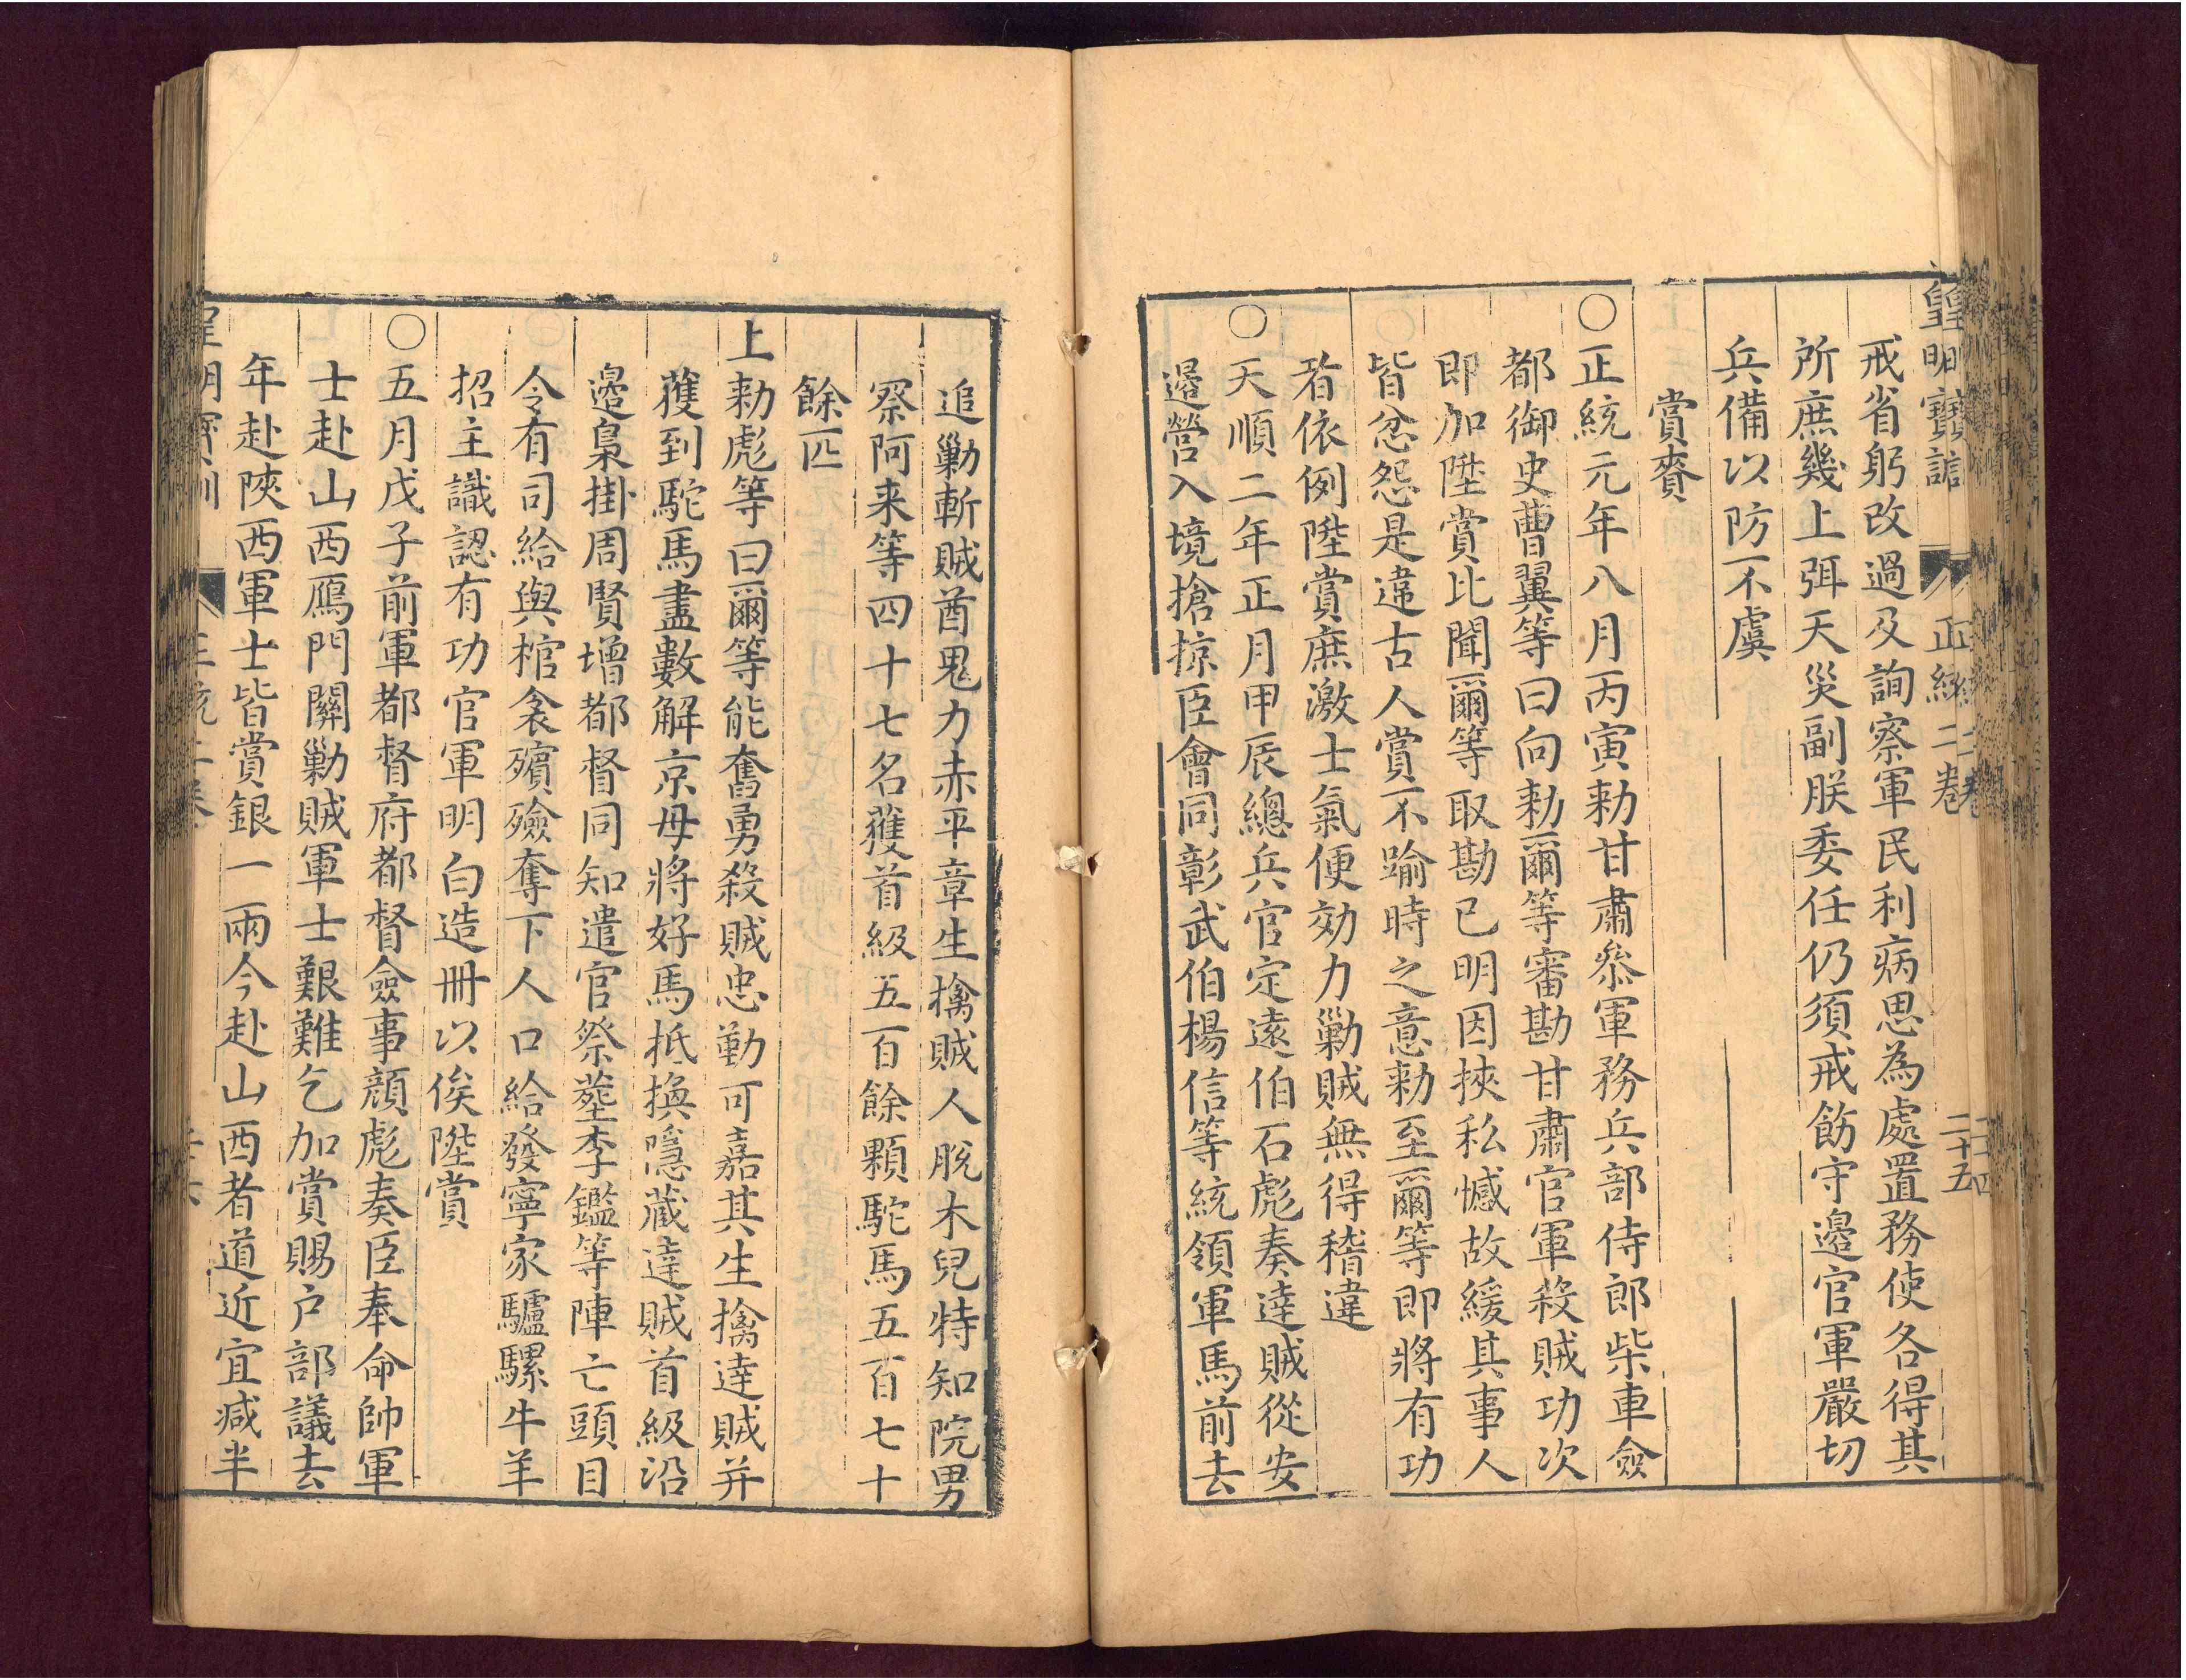 皇明寶訓 正統二卷 二十五
戒省躬改過及詢察軍民利病思為處置務使各得其
所庶幾上弭天災副朕委任仍須戒飭守邊官軍嚴切
兵備以防不虞
賞賚
○正統元年八月丙寅勑甘肅叅軍務兵部侍郎柴車僉
都御史曹翼等曰向勑爾等審勘甘肅官軍殺賊功次
即加陞賞比聞爾等取勘已明因挾私憾故緩其事人
皆忿怨是違古人賞不踰時之意勑至爾等即將有功
者依例陞賞庶激士氣便効力勦賊無得稽違
○天順二年正月甲辰總兵官定遠伯石彪奏達賊從安
邊營入境搶掠臣會同彰武伯楊信等統領軍馬前去
追勦斬賊酋鬼力赤平章生擒賊人脫木兒特知院男
察阿来等四十七名獲首級五百餘顆駝馬五百七十
餘匹
上勑彪等曰爾等能奮勇殺賊忠勤可嘉其生擒達賊并
獲到駝馬盡數解京毋將好馬抵換隱藏達賊首級沿
邊梟掛周賢增都督同知遣官祭塟李鑑等陣亡頭目
令有司給與棺衾殯殮奪下人口給發寧家驢騾牛羊
招主識認有功官軍明白造冊以俟陞賞
○五月戊子前軍都督府都督僉事顏彪奏臣奉命帥軍
士赴山西鴈門關勦賊軍士艱難乞加賞賜户部議去
年赴陝西軍士皆賞銀一兩今赴山西者道近宜减半